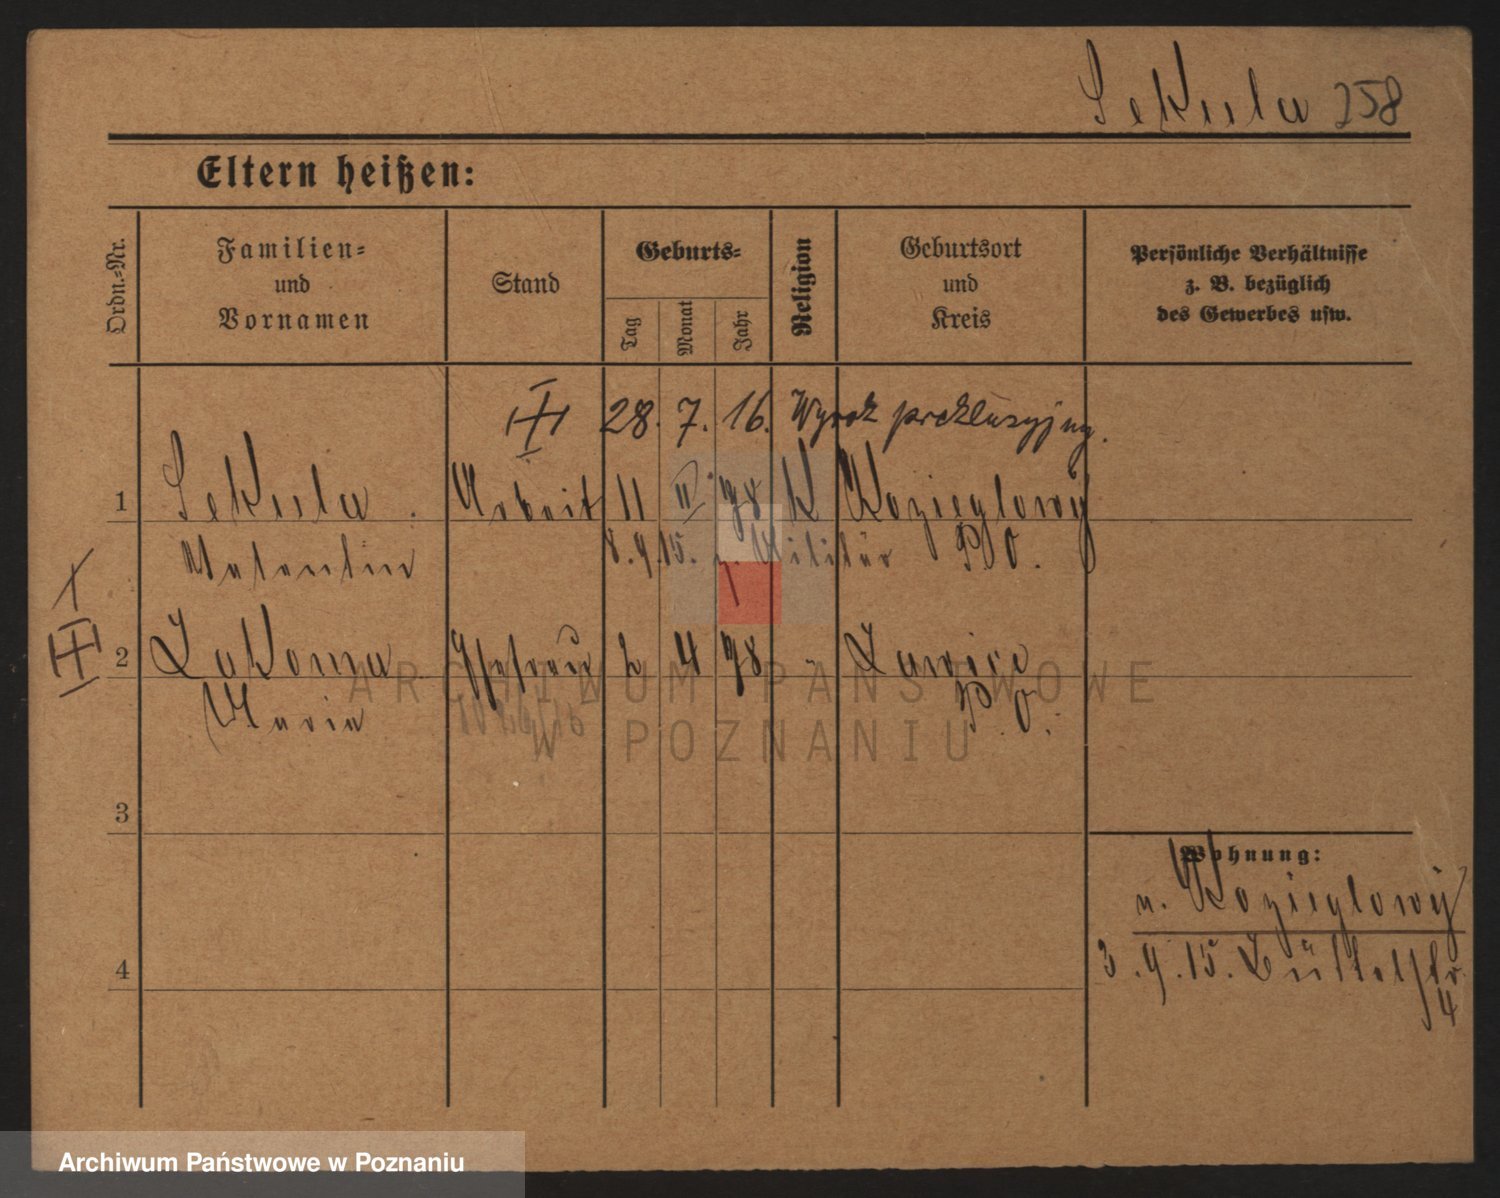 Sekula 258
Eltern heißen:
Ordn.-Nr.
Familien-
und
Vornamen
Stand
Geburts-
Tag
Monat
Jahr
Religion
Geburtsort
und
Kreis
Persönliche Verhältnisse
z. B. bezüglich
des Gewerbes usw.
28. 7. 16. Wyrok prekluzyjny.
1 Sekula Arbeit 11 II 78 K Kozieglowy
Valentin 8.9.15. z. Militär P. O.
2 Lakoma Ehefrau 2 4 78 " Lawice
Maria P. O.
3
4
Wohnung:
n. Kozieglowy
3.9.15. Büttelstr.
4
ARCHIWUM PAŃSTWOWE
W POZNANIU
Archiwum Państwowe w Poznaniu